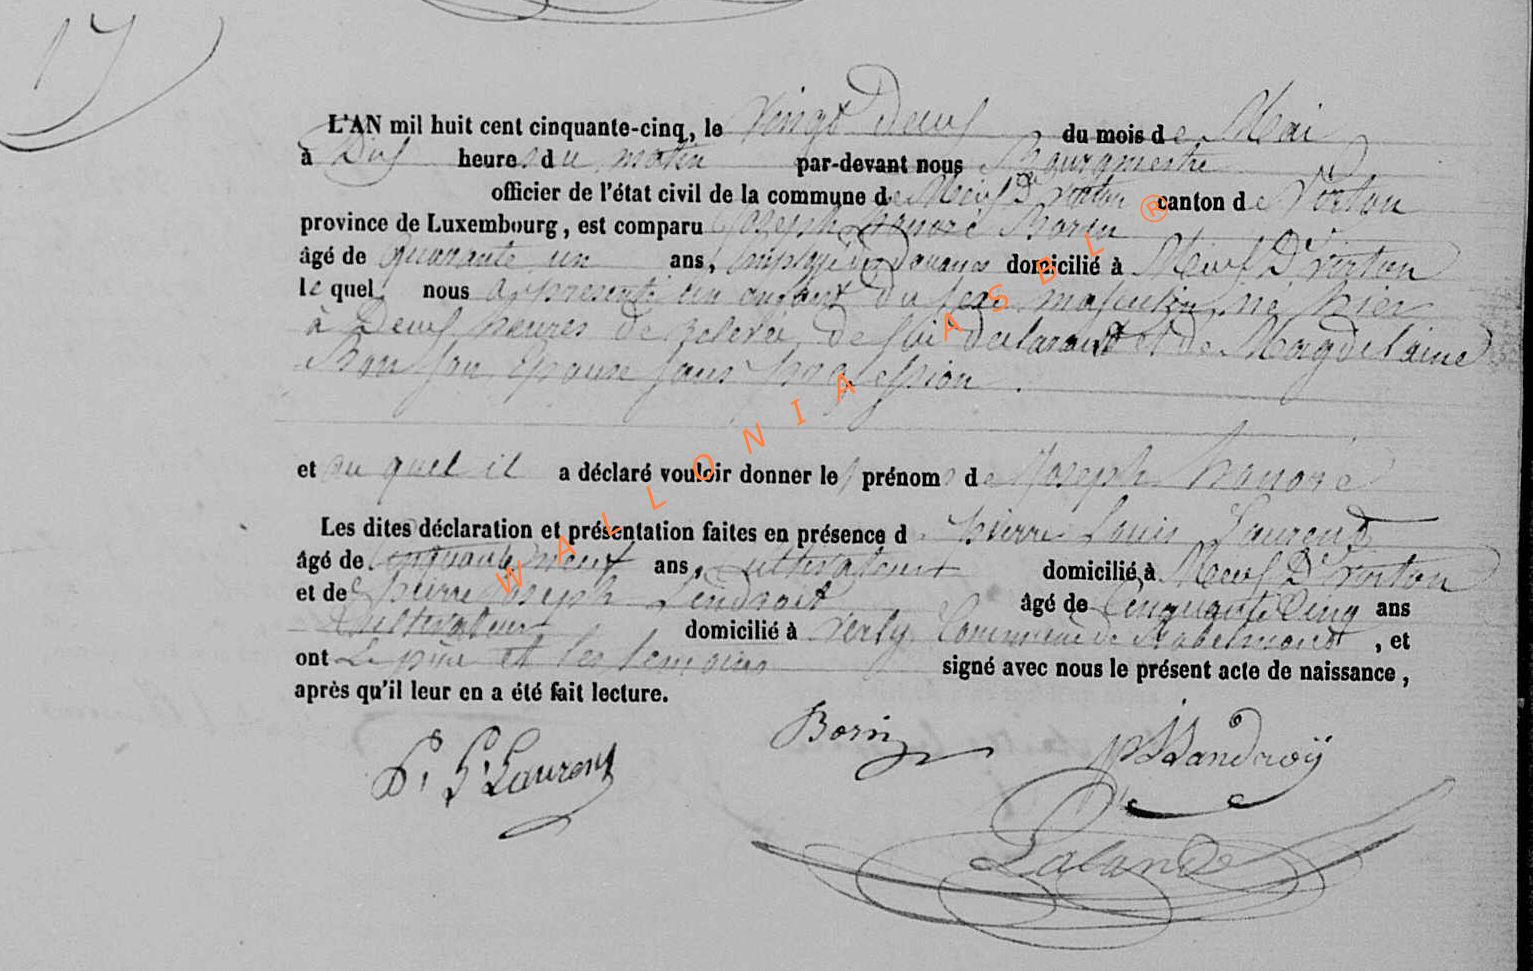 17
L'AN mil huit cent cinquante-cinq, le Vingt Deux du mois de Mai
à Dix heures du matin par-devant nous Bourgmestre
officier de l'état civil de la commune de Meix Dt Virton canton de Virton
province de Luxembourg, est comparu Joseph honoré Borin
âgé de quarante un ans, Employé des douanes domicilié à Meix Dt Virton
lequel nous a présenté un enfant du sexe masculin né hier
à Deux heures de relevée, de lui déclarant et de Magdelaine
son Epouse sans profession.
et auquel il a déclaré vouloir donner les prénoms de Joseph honoré
Les dites déclaration et présentation faites en présence d Pierre Louis Laurent
âgé de cinquante neuf ans, cultivateur domicilié à Meix Dt Virton
et de Pierre Joseph âgé de Cinquante Cinq ans
Cultivateur domicilié à Commune de, et
ont Le père et les temoins signé avec nous le présent acte de naissance,
après qu'il leur en a été fait lecture.
P. L. Laurent
Borin
Lalande
WALLONIA ASBL ®